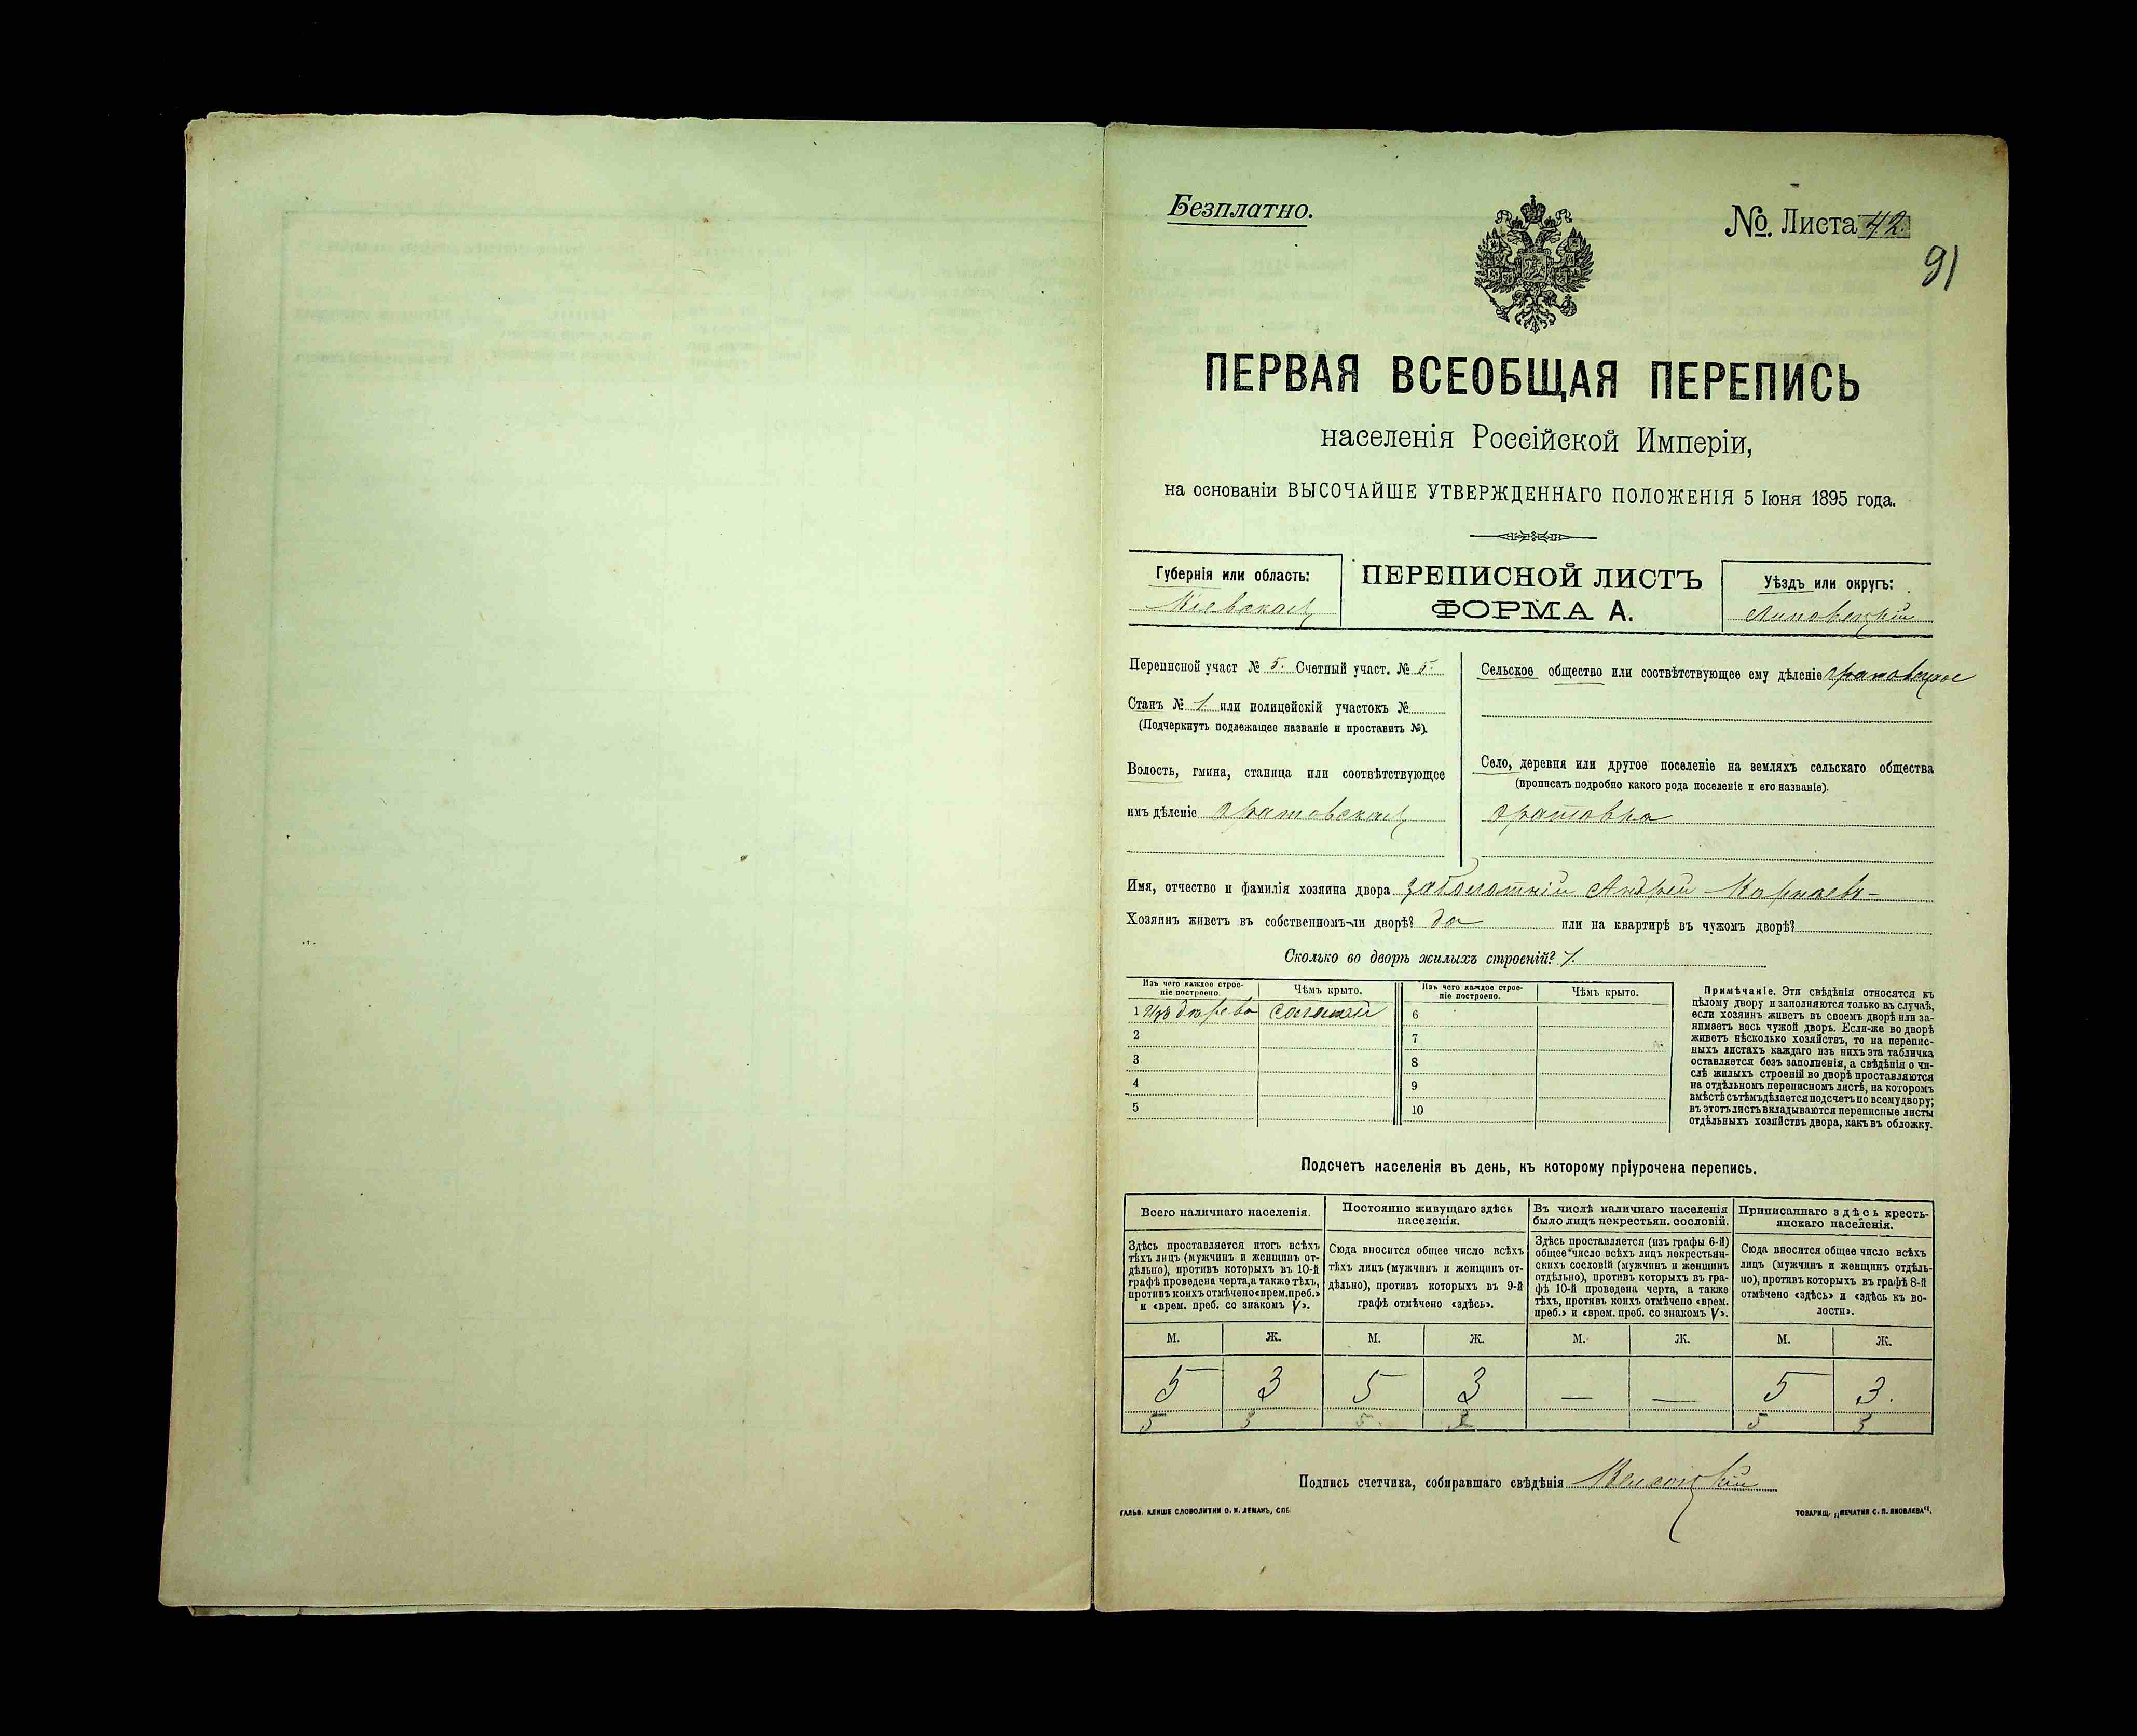 Безплатно.
№. Листа 42.
91
ПЕРВАЯ ВСЕОБЩАЯ ПЕРЕПИСЬ
населенія Россійской Имперіи,
на основаніи ВЫСОЧАЙШЕ УТВЕРЖДЕННАГО ПОЛОЖЕНІЯ 5 Іюня 1895 года.
Губернія или область:
Кіевская
ПЕРЕПИСНОЙ ЛИСТЪ
ФОРМА А.
Уѣздъ или округъ:
Липовецкій
Переписной участ № 5. Счетный участ. № 5.
Станъ № 1 или полицейскій участокъ №
(Подчеркнуть подлежащее названіе и проставить №).
Волость, гмина, станица или соотвѣтствующее
имъ дѣленіе
Сельское общество или соотвѣтствующее ему дѣленіе
Село, деревня или другое поселеніе на земляхъ сельскаго общества
(прописать подробно какого рода поселеніе и его названіе).
Имя, отчество и фамилія хозяина двора Заболотній Андрей
Хозяинъ живетъ въ собственномъ-ли дворѣ? да или на квартирѣ въ чужомъ дворѣ?
Сколько во дворѣ жилыхъ строеній? 1.
Изъ чего каждое строе-
ніе построено.
Чѣмъ крыто.
Изъ чего каждое строе-
ніе построено.
Чѣмъ крыто.
1 Изъ дерева соломой
2
3
4
5
6
7
8
9
10
Примѣчаніе. Эти свѣдѣнія относятся къ
цѣлому двору и заполняются только въ случаѣ,
если хозяинъ живетъ въ своемъ дворѣ или за-
нимаетъ весь чужой дворъ. Если-же во дворѣ
живетъ нѣсколько хозяйствъ, то на перепис-
ныхъ листахъ каждаго изъ нихъ эта табличка
оставляется безъ заполненія, а свѣдѣнія о чи-
слѣ жилыхъ строеній во дворѣ проставляются
на отдѣльномъ переписномъ листѣ, на которомъ
вмѣстѣ съ тѣмъ дѣлается подсчетъ по всему двору;
въ этотъ листъ вкладываются переписные листы
отдѣльныхъ хозяйствъ двора, какъ въ обложку.
Подсчетъ населенія въ день, къ которому пріурочена перепись.
Всего наличнаго населенія.
Здѣсь проставляется итогъ всѣхъ
тѣхъ лицъ (мужчинъ и женщинъ от-
дѣльно), противъ которыхъ въ 10-й
графѣ проведена черта, а также тѣхъ,
противъ коихъ отмѣчено «врем. преб.»
и «врем. преб. со знакомъ V».
Постоянно живущаго здѣсь
населенія.
Сюда вносится общее число всѣхъ
тѣхъ лицъ (мужчинъ и женщинъ от-
дѣльно), противъ которыхъ въ 9-й
графѣ отмѣчено «здѣсь».
Въ числѣ наличнаго населенія
было лицъ некрестьян. сословій.
Здѣсь проставляется (изъ графы 6-й)
общее число всѣхъ лицъ некрестьян-
скихъ сословій (мужчинъ и женщинъ
отдѣльно), противъ которыхъ въ гра-
фѣ 10-й проведена черта, а также
тѣхъ, противъ коихъ отмѣчено «врем.
преб.» и «врем. преб. со знакомъ V».
Приписаннаго здѣсь кресть-
янскаго населенія.
Сюда вносится общее число всѣхъ
лицъ (мужчинъ и женщинъ отдѣль-
но), противъ которыхъ въ графѣ 8-й
отмѣчено «здѣсь» и «здѣсь къ во-
лости».
М. Ж. М. Ж. М. Ж. М. Ж.
5 3 5 3 — — 5 3.
5 3 5 3 5 3
Подпись счетчика, собиравшаго свѣдѣнія
ГАЛЬВ. КЛИШЕ СЛОВОЛИТНИ О. И. ЛЕМАНЪ, СПБ.
ТОВАРИЩ. „ПЕЧАТНЯ С. П. ЯКОВЛЕВА“.